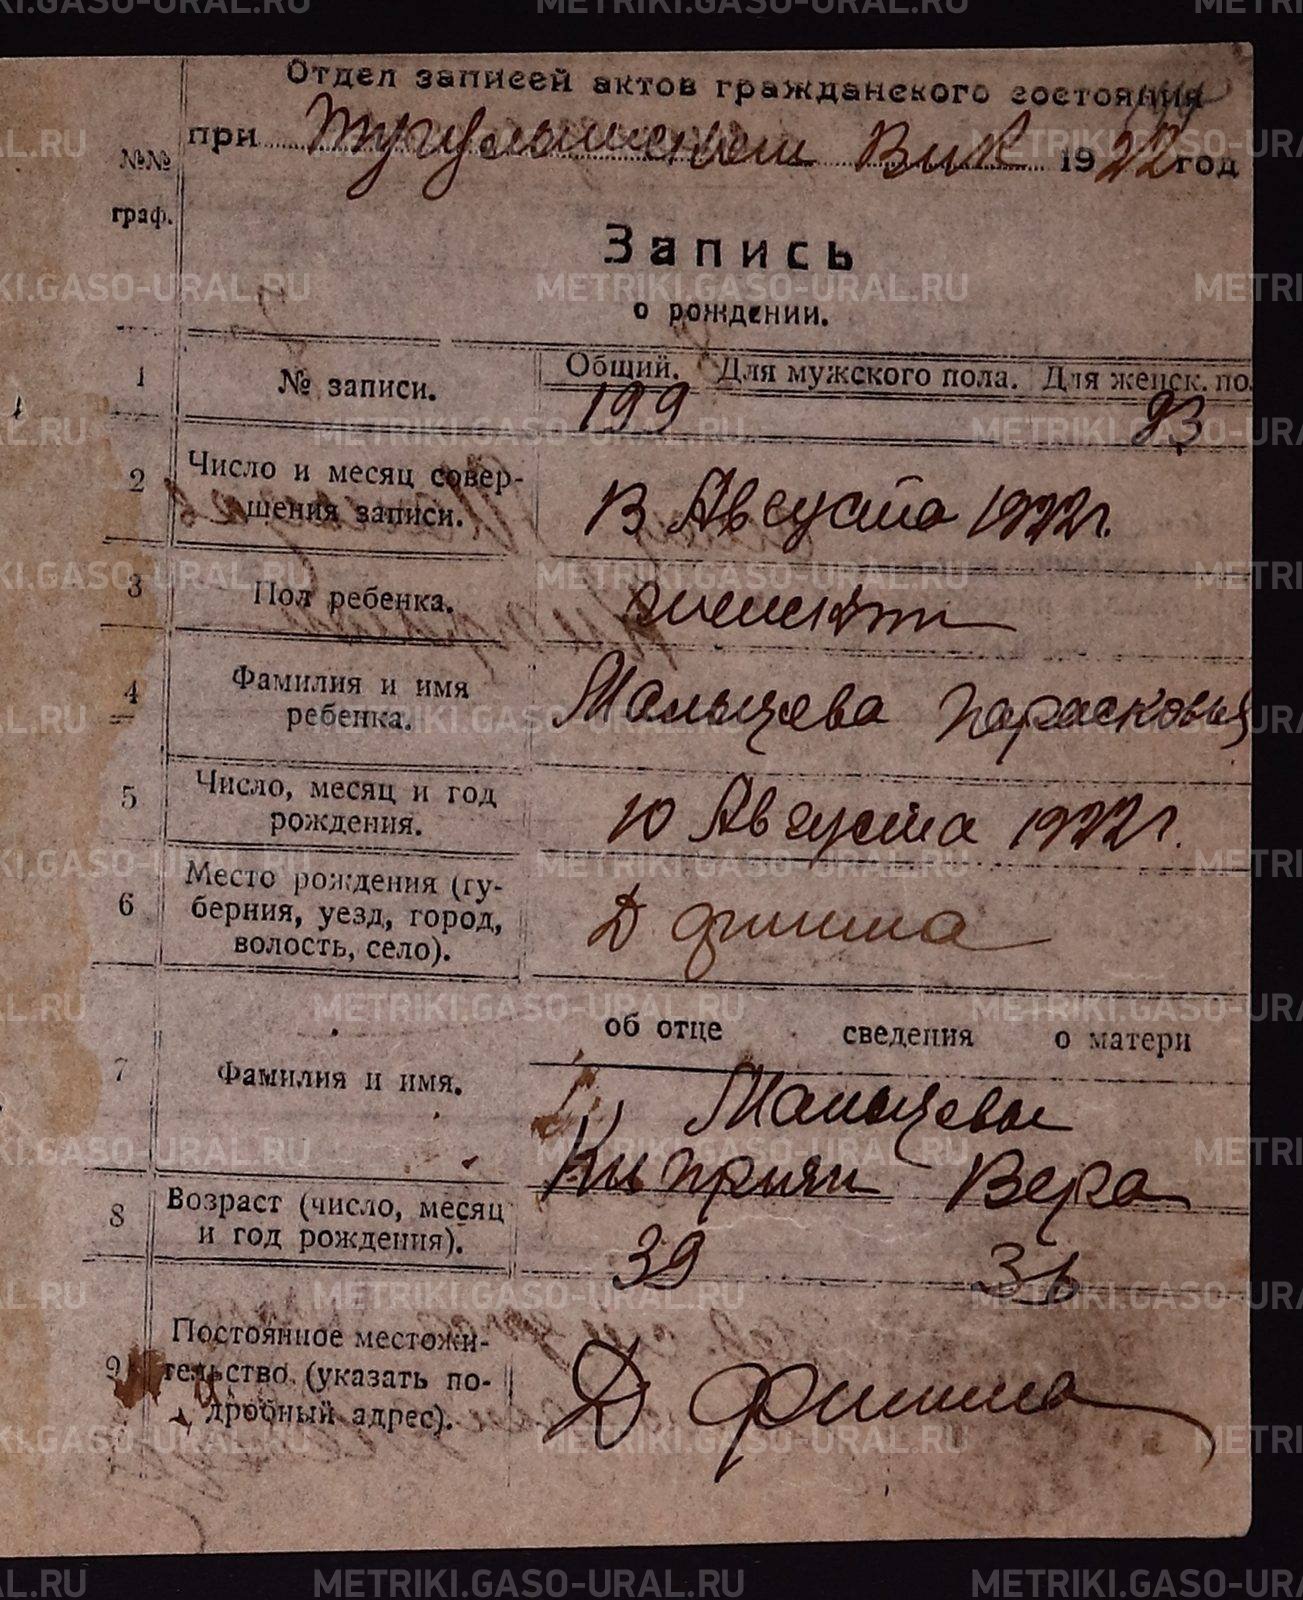 Отдел записей актов гражданского состояния
при Тугулымском Вик 1922 год
№№
граф.
Запись
о рождении.
1 № записи. Общий. Для мужского пола. Для женск. по
199 93
2 Число и месяц совер-
шения записи.
13 Августа 1922 г.
3 Пол ребенка. женский
4 Фамилия и имя
ребенка.
Мальцева Парасковья
5 Число, месяц и год
рождения.
10 Августа 1922 г.
6 Место рождения (гу-
берния, уезд, город,
волость, село).
Д
об отце сведения о матери
7 Фамилия и имя.
Мальцевы
Киприян Вера
8 Возраст (число, месяц
и год рождения).
39 36
9 Постоянное местожи-
тельство (указать по-
дробный адрес).
Д
METRIKI.GASO-URAL.RU